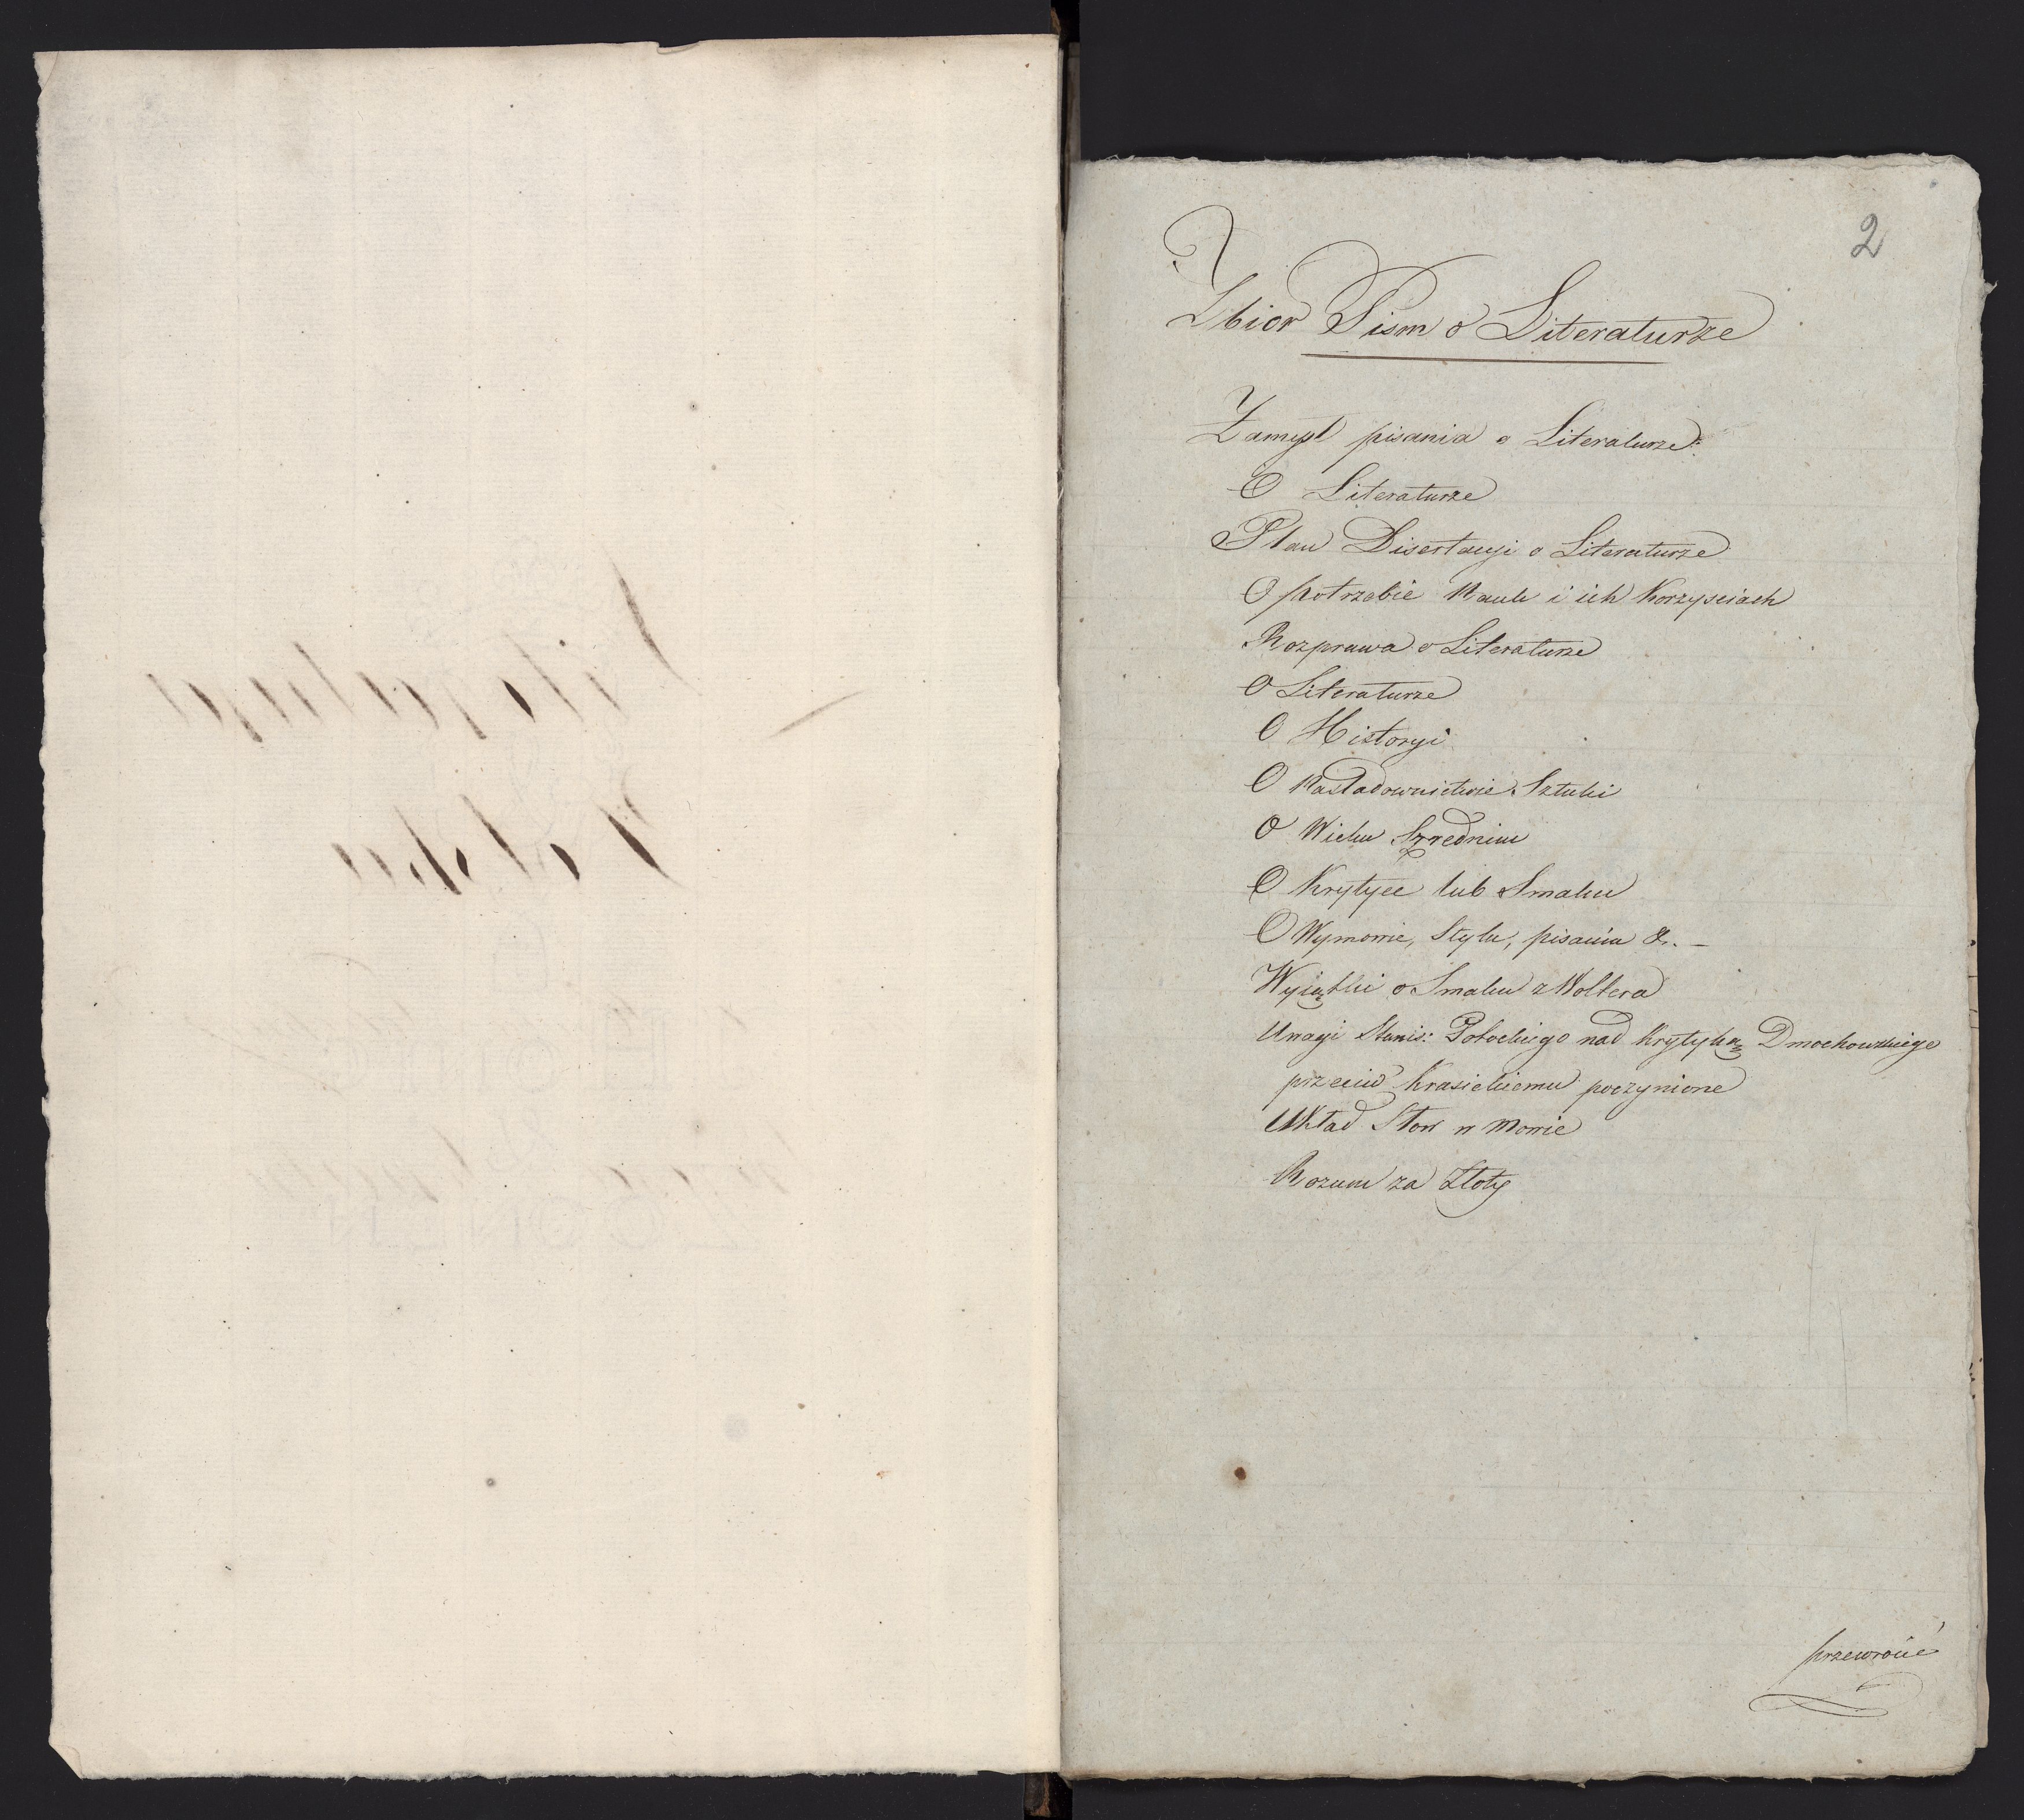 2
Zbior Pism o Literaturze
Zamysł pisania o Literaturze:
O Literaturze
Plan Disertacyi o Literaturze
O potrzebie Nauk i ich Korzysciach
Rozprawa o Literaturze
O Literaturze
O Historyi
O Nasladownictwie Sztuki
O Wieku Szrednim
O Krytyce lub Smaku
O Wymowie, Stylu, pisania &. —
Wyiątki o Smaku z Woltera
Uwagi Stanis: Potockiego nad Krytyką Dmochowskiego
przeciw Krasickiemu poczynione
Układ Słow w Mowie
Rozum za Złoty
przewrócić